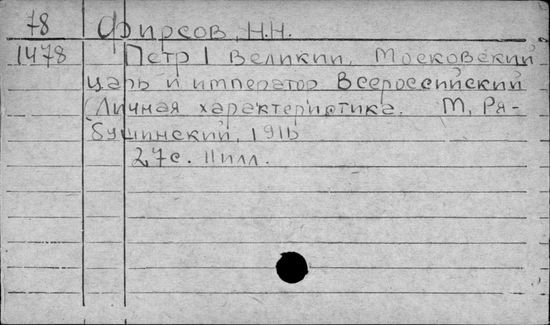 78 Фирсов, Н.Н.
1478 Петр I Великий, Московский
царь и император Всероссийский
(Личная характеристика. М, Ря-
бушинский, 1916
27с. 11илл.